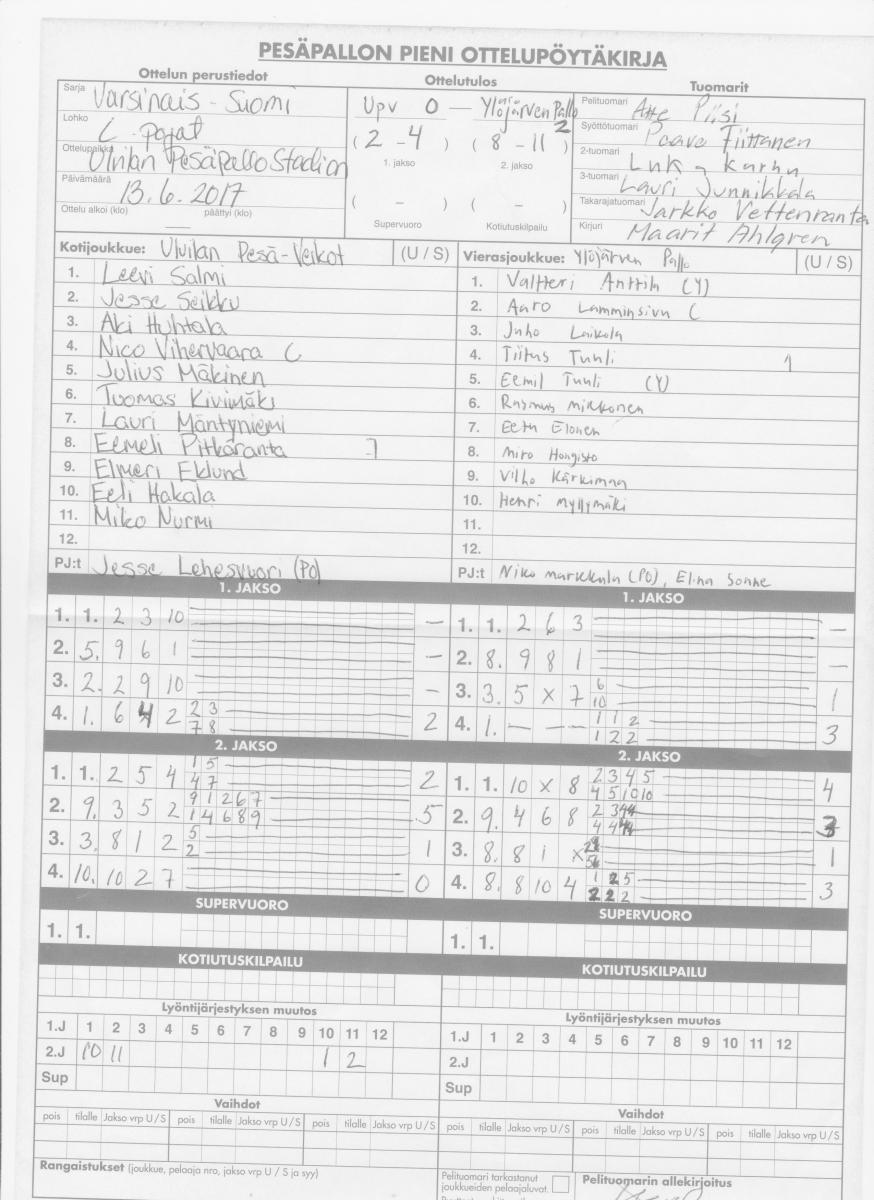 PESÄPALLON PIENI OTTELUPÖYTÄKIRJA
Ottelun perustiedot Ottelutulos Tuomarit
Sarja Varsinais-Suomi
Lohko C-pojat
Ottelupaikka Ulvilan PesäpalloStadion
Päivämäärä 13.6.2017
Ottelu alkoi (klo) — päättyi (klo)
Upv 0 — Ylöjärven Pallo 2
(2 - 4) (8 - 11)
1. jakso 2. jakso
( - ) ( - )
Supervuoro Kotiutuskilpailu
Pelituomari Atte Piisi
Syöttötuomari Paavo Tiittanen
2-tuomari Luka Karhu
3-tuomari Lauri Junnikkala
Takarajatuomari Jarkko Vettenranta
Kirjuri Maarit Ahlgren
Kotijoukkue: Ulvilan Pesä-Veikot (U / S)
1. Leevi Salmi
2. Jesse Seikku
3. Aki Huhtala
4. Nico Vihervaara C
5. Julius Mäkinen
6. Tuomas Kivimäki
7. Lauri Mäntyniemi
8. Eemeli Pitkäranta
9. Elmeri Eklund
10. Eeli Hakala
11. Miko Nurmi
12.
PJ:t Jesse Lehesvuori (PO)
Vierasjoukkue: Ylöjärven Pallo (U / S)
1. Valtteri Anttila (Y)
2. Aaro Lamminsivu C
3. Juho Laikola
4. Tiitus Tuuli 1
5. Eemil Tuuli (Y)
6. Rasmus Mikkonen
7. Eetu Elonen
8. Miro Hongisto
9. Vilho Kärkimaa
10. Henri Myllymäki
11.
12.
PJ:t Niko Markkula (PO), Elina Sonne
1. JAKSO
1. 1. 2 3 10 —
2. 5. 9 6 1 —
3. 2. 2 9 10 —
4. 1. 6 4 2 2 3 2
7 8
1. JAKSO
1. 1. 2 6 3 —
2. 8. 9 8 1 —
3. 3. 5 x 7 6 1
10
4. 1. — — — 1 1 2 3
1 2 2
2. JAKSO
1. 1. 2 5 4 1 5 2
4 7
2. 9. 3 5 2 9 1 2 6 7 5
1 4 6 8 9
3. 3. 8 1 2 5 1
2
4. 10. 10 2 7 0
2. JAKSO
1. 1. 10 x 8 2 3 4 5 4
4 5 10 10
2. 9. 4 6 8 2 3 3
4 4
3. 8. 8 1 x 1
4. 8. 8 10 4 1 2 5 3
2 2 2
SUPERVUORO
1. 1.
SUPERVUORO
1. 1.
KOTIUTUSKILPAILU
KOTIUTUSKILPAILU
Lyöntijärjestyksen muutos
1.J 1 2 3 4 5 6 7 8 9 10 11 12
2.J 10 11 1 2
Sup
Lyöntijärjestyksen muutos
1.J 1 2 3 4 5 6 7 8 9 10 11 12
2.J
Sup
Vaihdot
pois tilalle Jakso vrp U / S pois tilalle Jakso vrp U / S pois tilalle Jakso vrp U / S
Vaihdot
pois tilalle Jakso vrp U / S pois tilalle Jakso vrp U / S pois tilalle Jakso vrp U / S
Rangaistukset (joukkue, pelaaja nro, jakso vrp U / S ja syy)
Pelituomari tarkastanut
joukkueiden pelaajaluvat.
Pelituomarin allekirjoitus